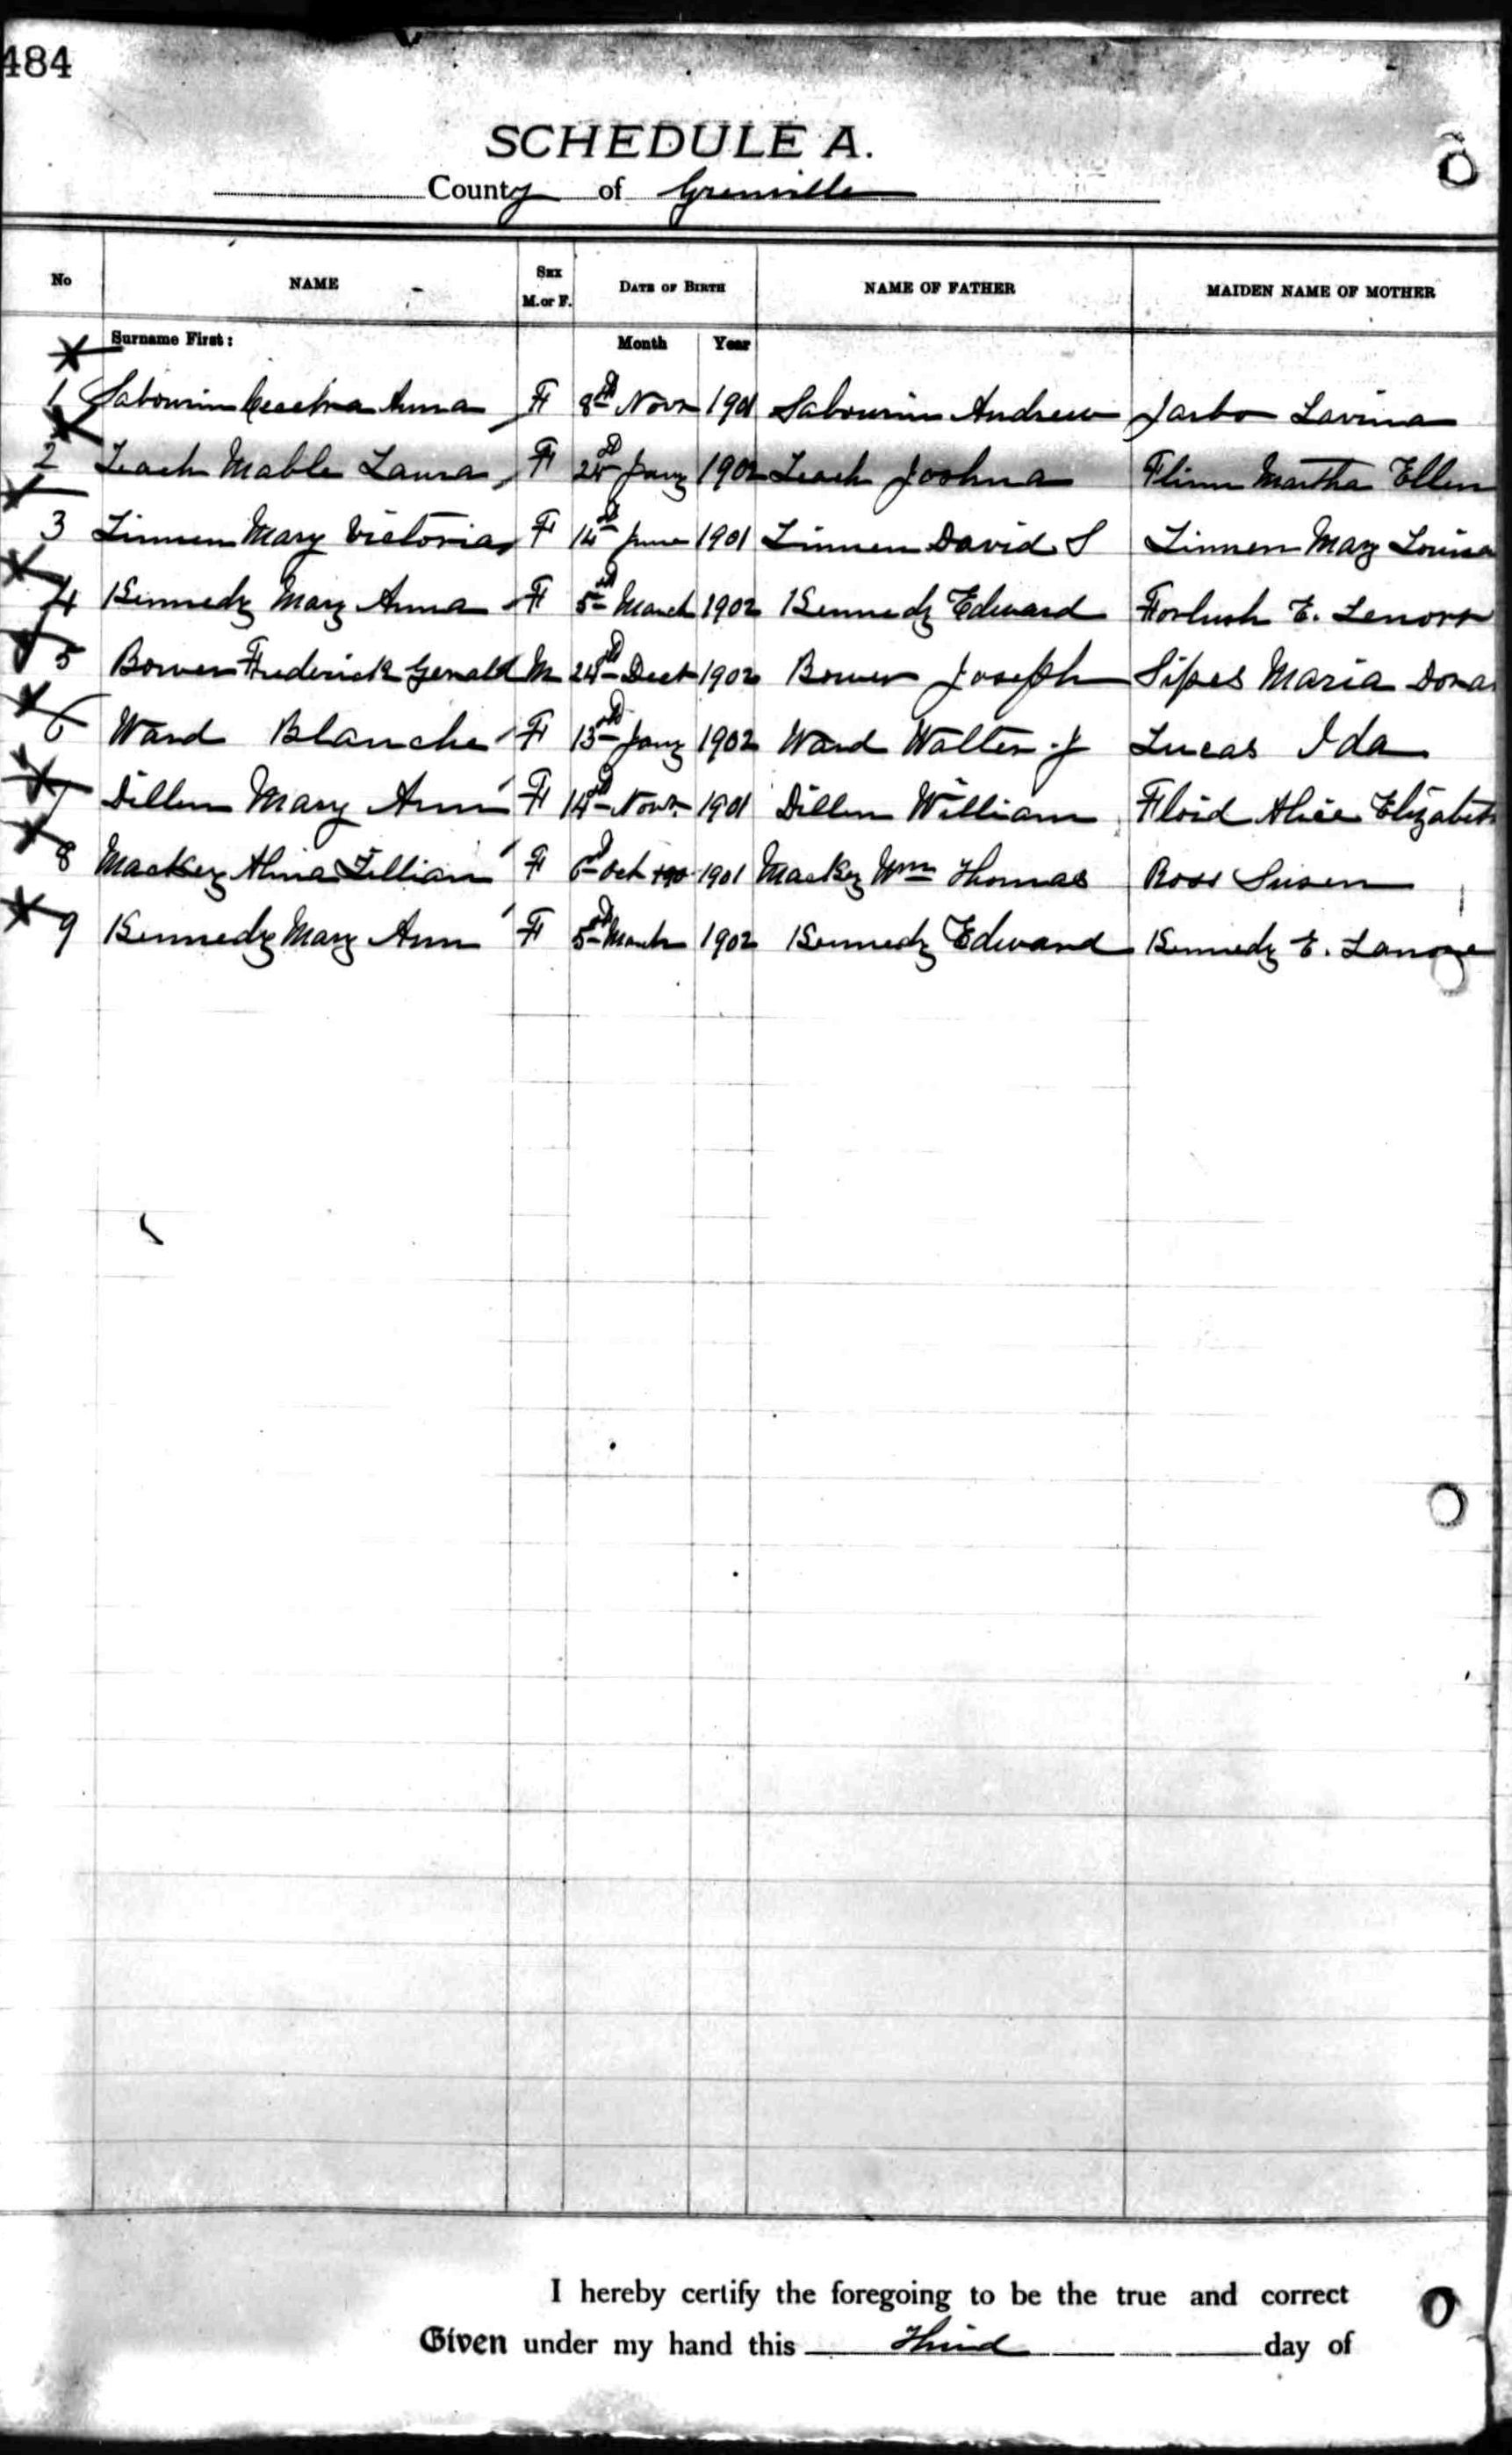 484
SCHEDULE A.
County of Grenville
No NAME Sex M. or F. Date of Birth NAME OF FATHER MAIDEN NAME OF MOTHER
Surname First: Month Year
1 Sabourin Anna F 8th Novr 1901 Sabourin Andrew Jarbo Lavina
2 Leach Mable Laura F Jany 1902 Leach Joshua Flinn Martha Ellen
3 Linnen Mary Victoria F 14th June 1901 Linnen David S Linnen Mary Louisa
4 Kennedy Mary Anna F 5th March 1902 Kennedy Edward E. Lenora
5 Bower Frederick Gerald M 24th Dect 1902 Bower Joseph Sipes Maria Dona
6 Ward Blanche F 13th Jany 1902 Ward Walter J Lucas Ida
7 Dillen Mary Ann F 14th Novr 1901 Dillen William Floid Alice Elizabeth
8 Mackey Alma Lillian F 6th Oct 190 1901 Mackey Wm Thomas Ross Susen
9 Kennedy Mary Ann F 5th March 1902 Kennedy Edward Kennedy E. Lanore
I hereby certify the foregoing to be the true and correct
Given under my hand this Third day of